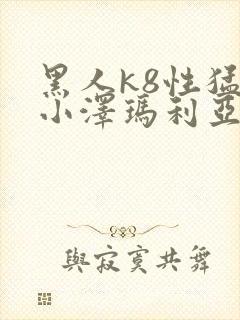 黑人k8性猛
小澤瑪利亞
與寂寞共舞